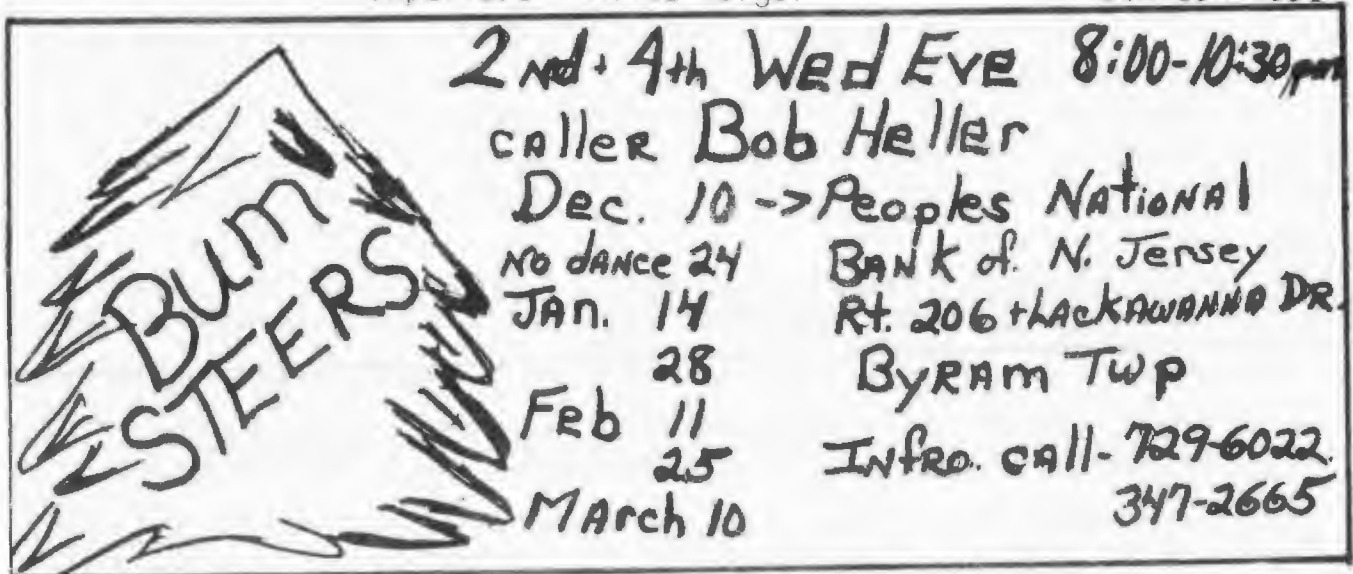 BUM
STEERS
2nd + 4th Wed Eve 8:00-10:30 pm
caller Bob Heller
Dec. 10 -> Peoples National
No dance 24 Bank of N. Jersey
Jan. 14 Rt. 206 + Lackawanna Dr.
28 Byram Twp
Feb 11
25 Infro. call- 729-6022.
March 10 347-2665